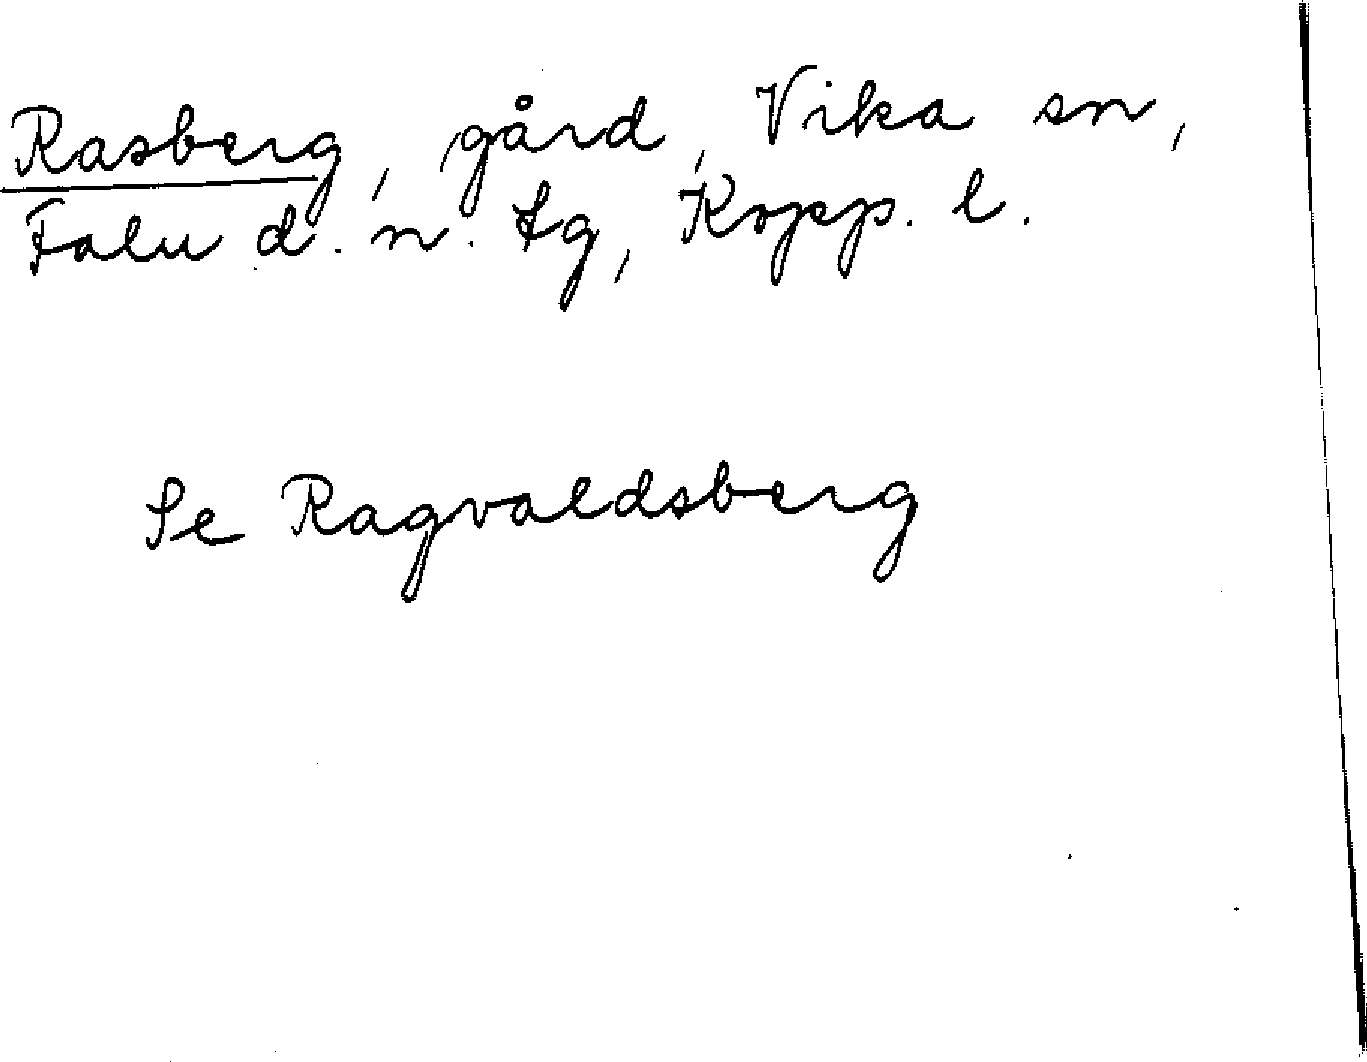 Rasberg, gård, Vika sn,
Falu d. n. tg, Kopp. l.
Se Ragvaldsberg